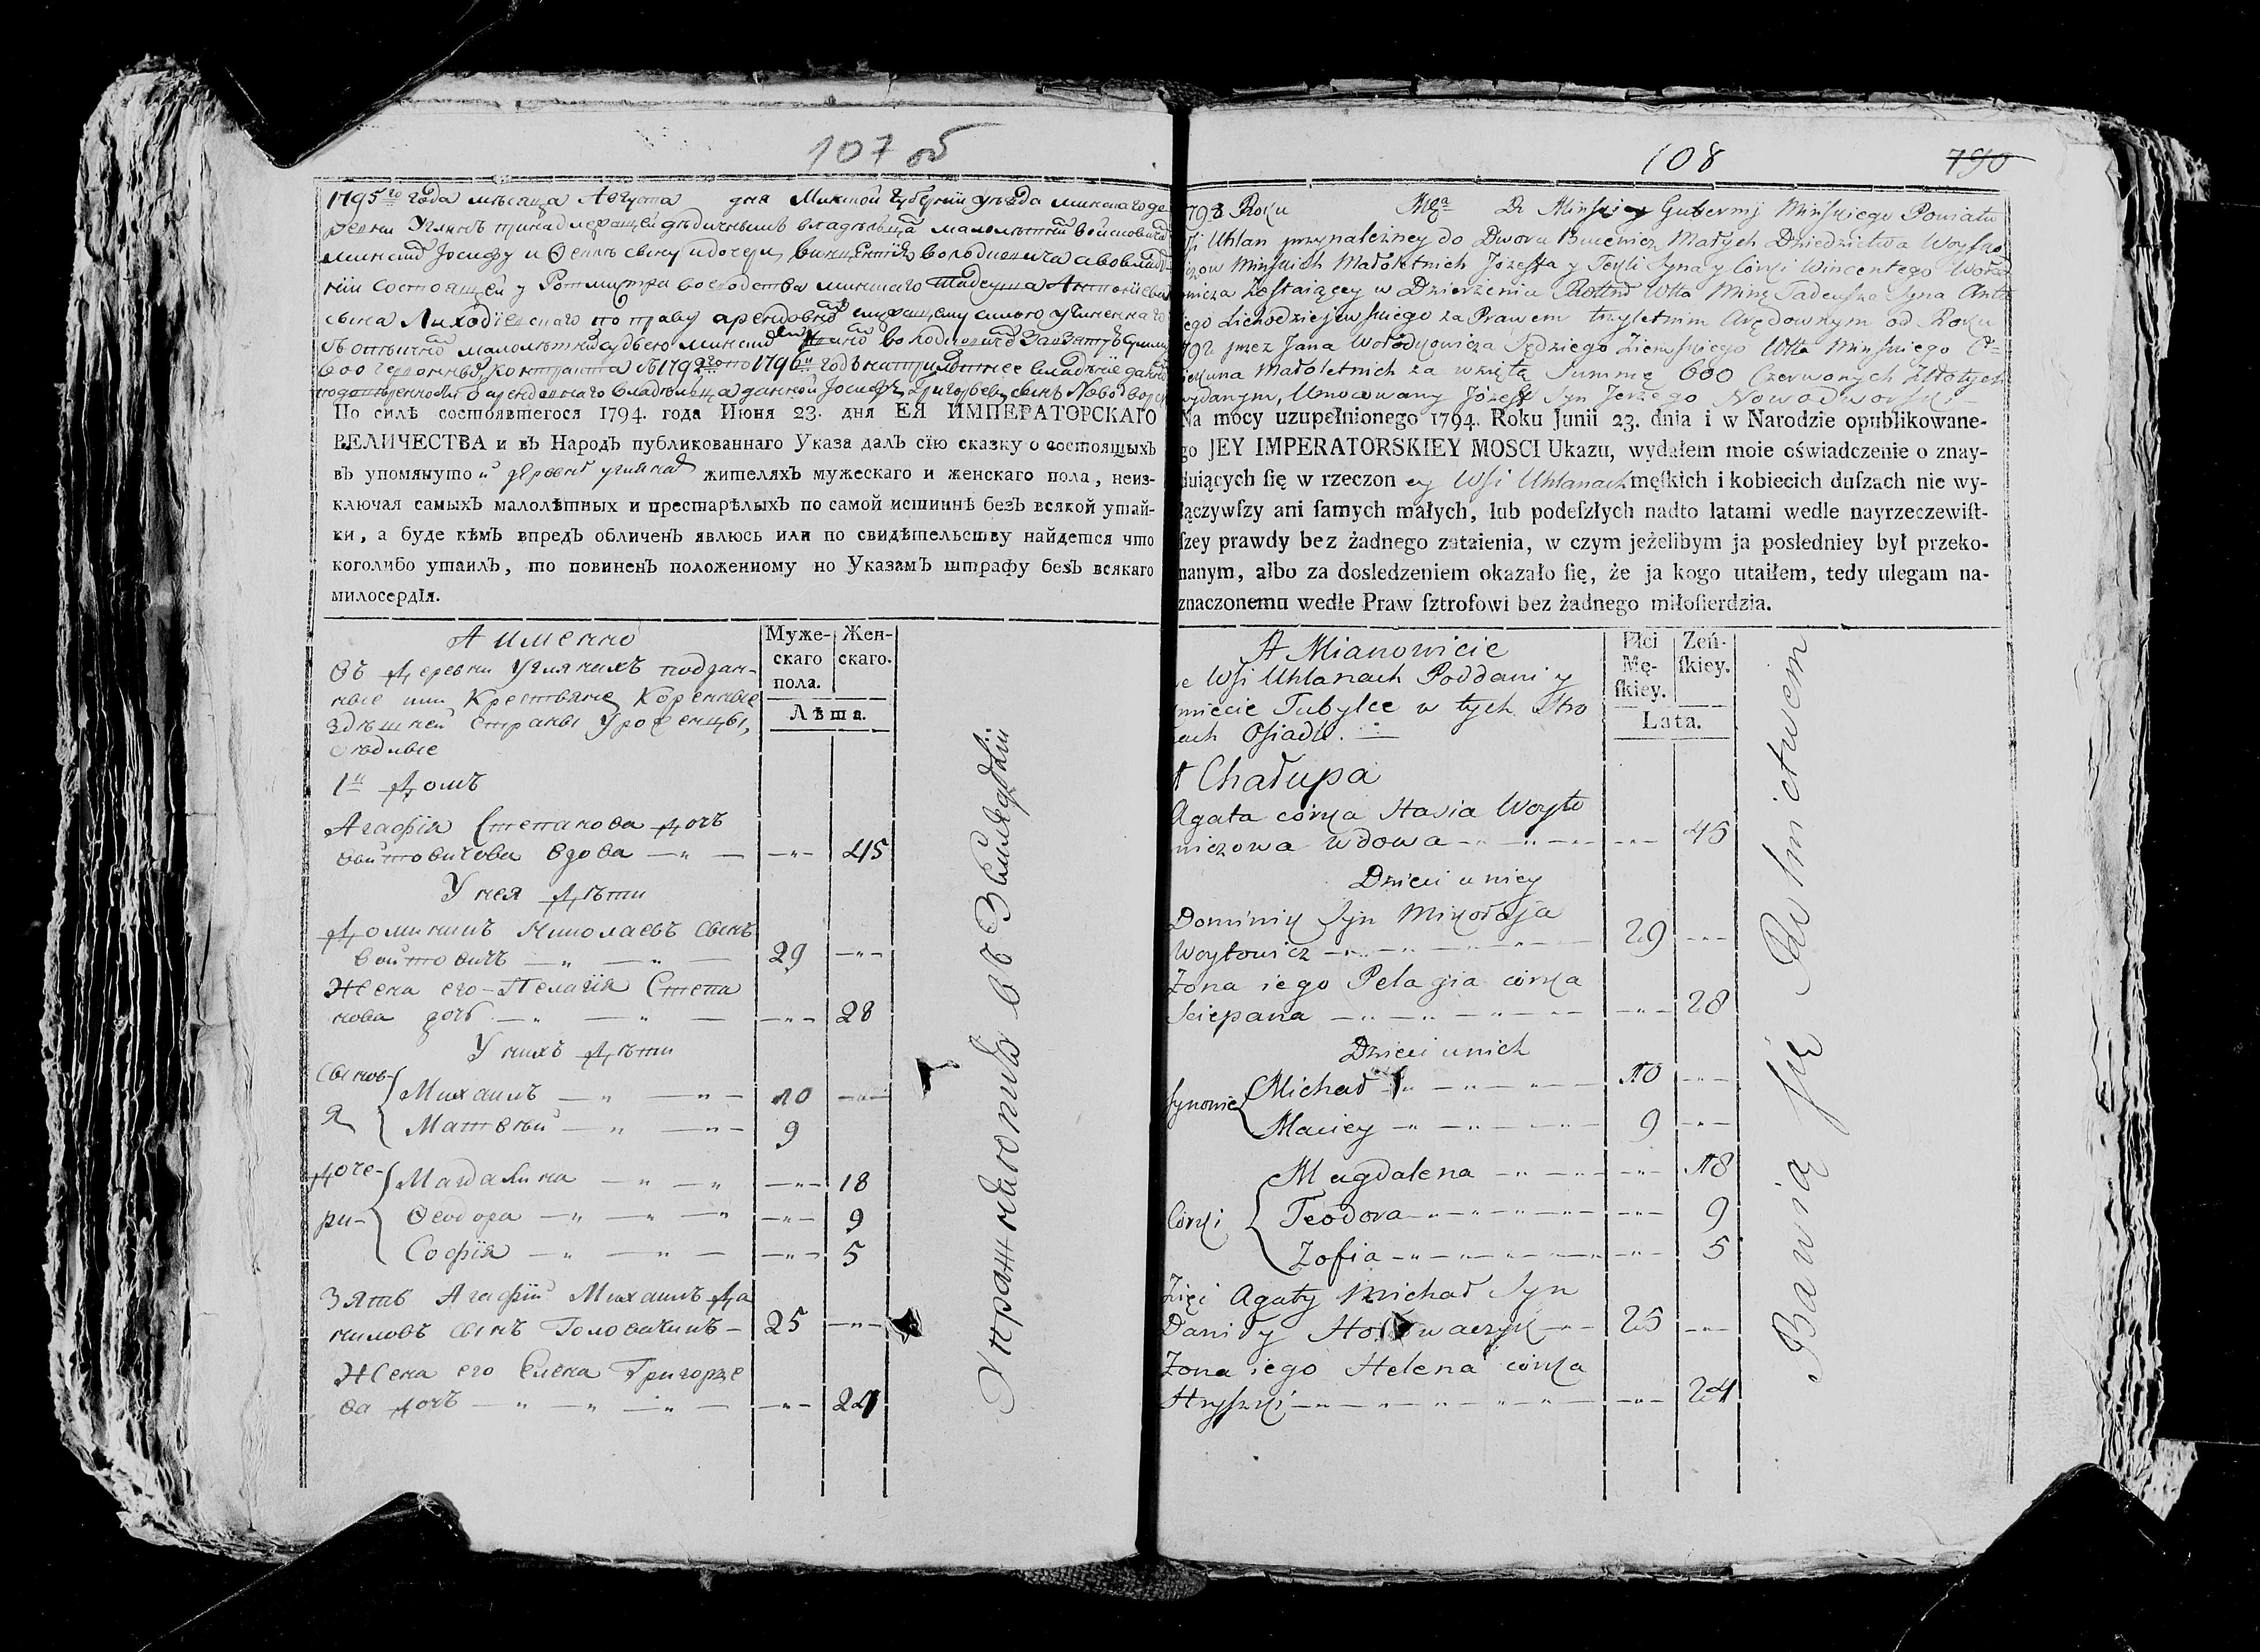 107 об
1795го года мѣсяца Августа дня Минской Губернїи уѣзда минскаго де
ревни Углянъ принадлежащей
минскаго Іосифу и Ѳеклѣ сыну и дочери
нїи состоящей у Ротмистра воеводства минскаго Тадеуша Антонїева
сына Лиходїевскаго по праву
1792го по 1796й годъ
По силѣ состоявшегося 1794. года Июня 23. дня ЕЯ ИМПЕРАТОРСКАГО
ВЕЛИЧЕСТВА и въ Народъ публикованнаго Указа далъ сїю сказку о состоящыхъ
въ упомянутой деревнѣ углянах жителяхъ мужескаго и женскаго пола, неиз-
ключая самыхъ малолѣтныхъ и престарѣлыхъ по самой истиннѣ безъ всякой утай-
ки, а буде кѣмъ впредь обличенъ явлюсь или по свидѣтельству найдется что
коголибо утаилъ, то повиненъ положенному по Указамъ штрафу безъ всякаго
милосердїя.
А именно
Муже-
скаго
пола.
Жен-
скаго.
Лѣта.
Въ Деревни Углянихъ поддан-
ные или Крестьяне Коренные
здѣшней страны Уроженцы,
Осѣдлые
1й Домъ
Агафїя Степанова Дочь
Войтовичова вдова 45
У нея Дѣти
Доминикъ Николаевъ сынъ
войтовичъ 29
Жена его Пелагїя Степа
нова дочь 28
У нихъ Дѣти
Сынов-
я
Михаилъ 10
Матвѣй 9
Доче-
ри
Магдалина 18
Ѳеодора 9
Софїя 5
Зять Агафїи Михаилъ Да
ниловъ сынъ Головачикъ 25
Жена его Елена Григорье
ва Дочь 24
Упражняютца въ Земледѣлїи
108
790
179 Roku Mca D Minskiey Gubernij Minskiego Powiatu
Wsi Uhlan przynależney do Dworu Małych Dziedzictwa
Minskich Małoletnich Józefa y Tekli Syna y Córki Wincentego
Zostaiącey w Dzierżeniu Wtta Minġ Tadeusza Syna Anto
niego Lichodziejewskiego za Prawem trzyletnim Arędownym od Roku
1792 przez Jana Wołodkowicza Sędziego Ziemskiego Wtta Minskiego O-
piekuna Małoletnich za wziętą Summę 600 Czerwonych Złotych
wydanym, Umocowany Józef Syn Jerzego Nowodworski
Na mocy uzupełnionego 1794. Roku Junii 23. dnia i w Narodzie opublikowane-
go JEY IMPERATORSKIEY MOSCI Ukazu, wydałem moie oświadczenie o znay-
duiących ſię w rzeczoney Wsi Uhlanach męſkich i kobiecich duſzach nie wy-
łączywſzy ani ſamych małych, lub podeſzłych nadto latami wedle nayrzeczewiſt-
ſzey prawdy bez żadnego zataienia, w czym jeżelibym ja posledniey był przeko-
nanym, albo za dosledzeniem okazało ſię, że ja kogo utaiłem, tedy ulegam na-
znaczonemu wedle Praw ſztrofowi bez żadnego miłoſierdzia.
A Mianowicie
Płci
Mę-
ſkiey.
Zeń-
ſkiey.
Lata.
we Wsi Uhlanach Poddani y
Kmiecie Tubylce w tych Stro
nach Osiadli.
1 Chałupa
Agata córka Stasia Woyto
wiczowa wdowa 45
Dzieci u niey
Dominik Syn Mikołaja
Woytowicz 29
Żona iego Pelagia córka
Sciepana 28
Dzieci u nich
Synowie
Michał 10
Maciey 9
Córki
Magdalena 18
Teodora 9
Zofia 5
Zięć Agaty Michał Syn
Daniły Hołowaczyk 25
Żona iego Helena córka
Hryszki 24
Bawią się Rolnictwem